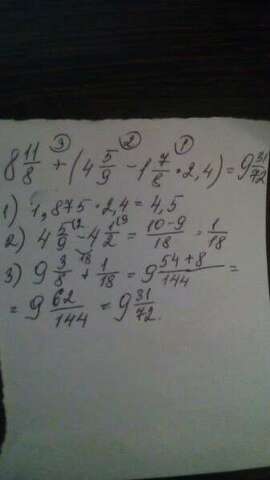 ③ ② ①
8 11/8 + (4 5/9 - 1 7/8 · 2,4) = 9 31/72
1) 1,875 · 2,4 = 4,5
2) 4 5/9 - 4 1/2 = (10 - 9)/18 = 1/18
3) 9 3/8 + 1/18 = 9 (54 + 8)/144 =
= 9 62/144 = 9 31/72.